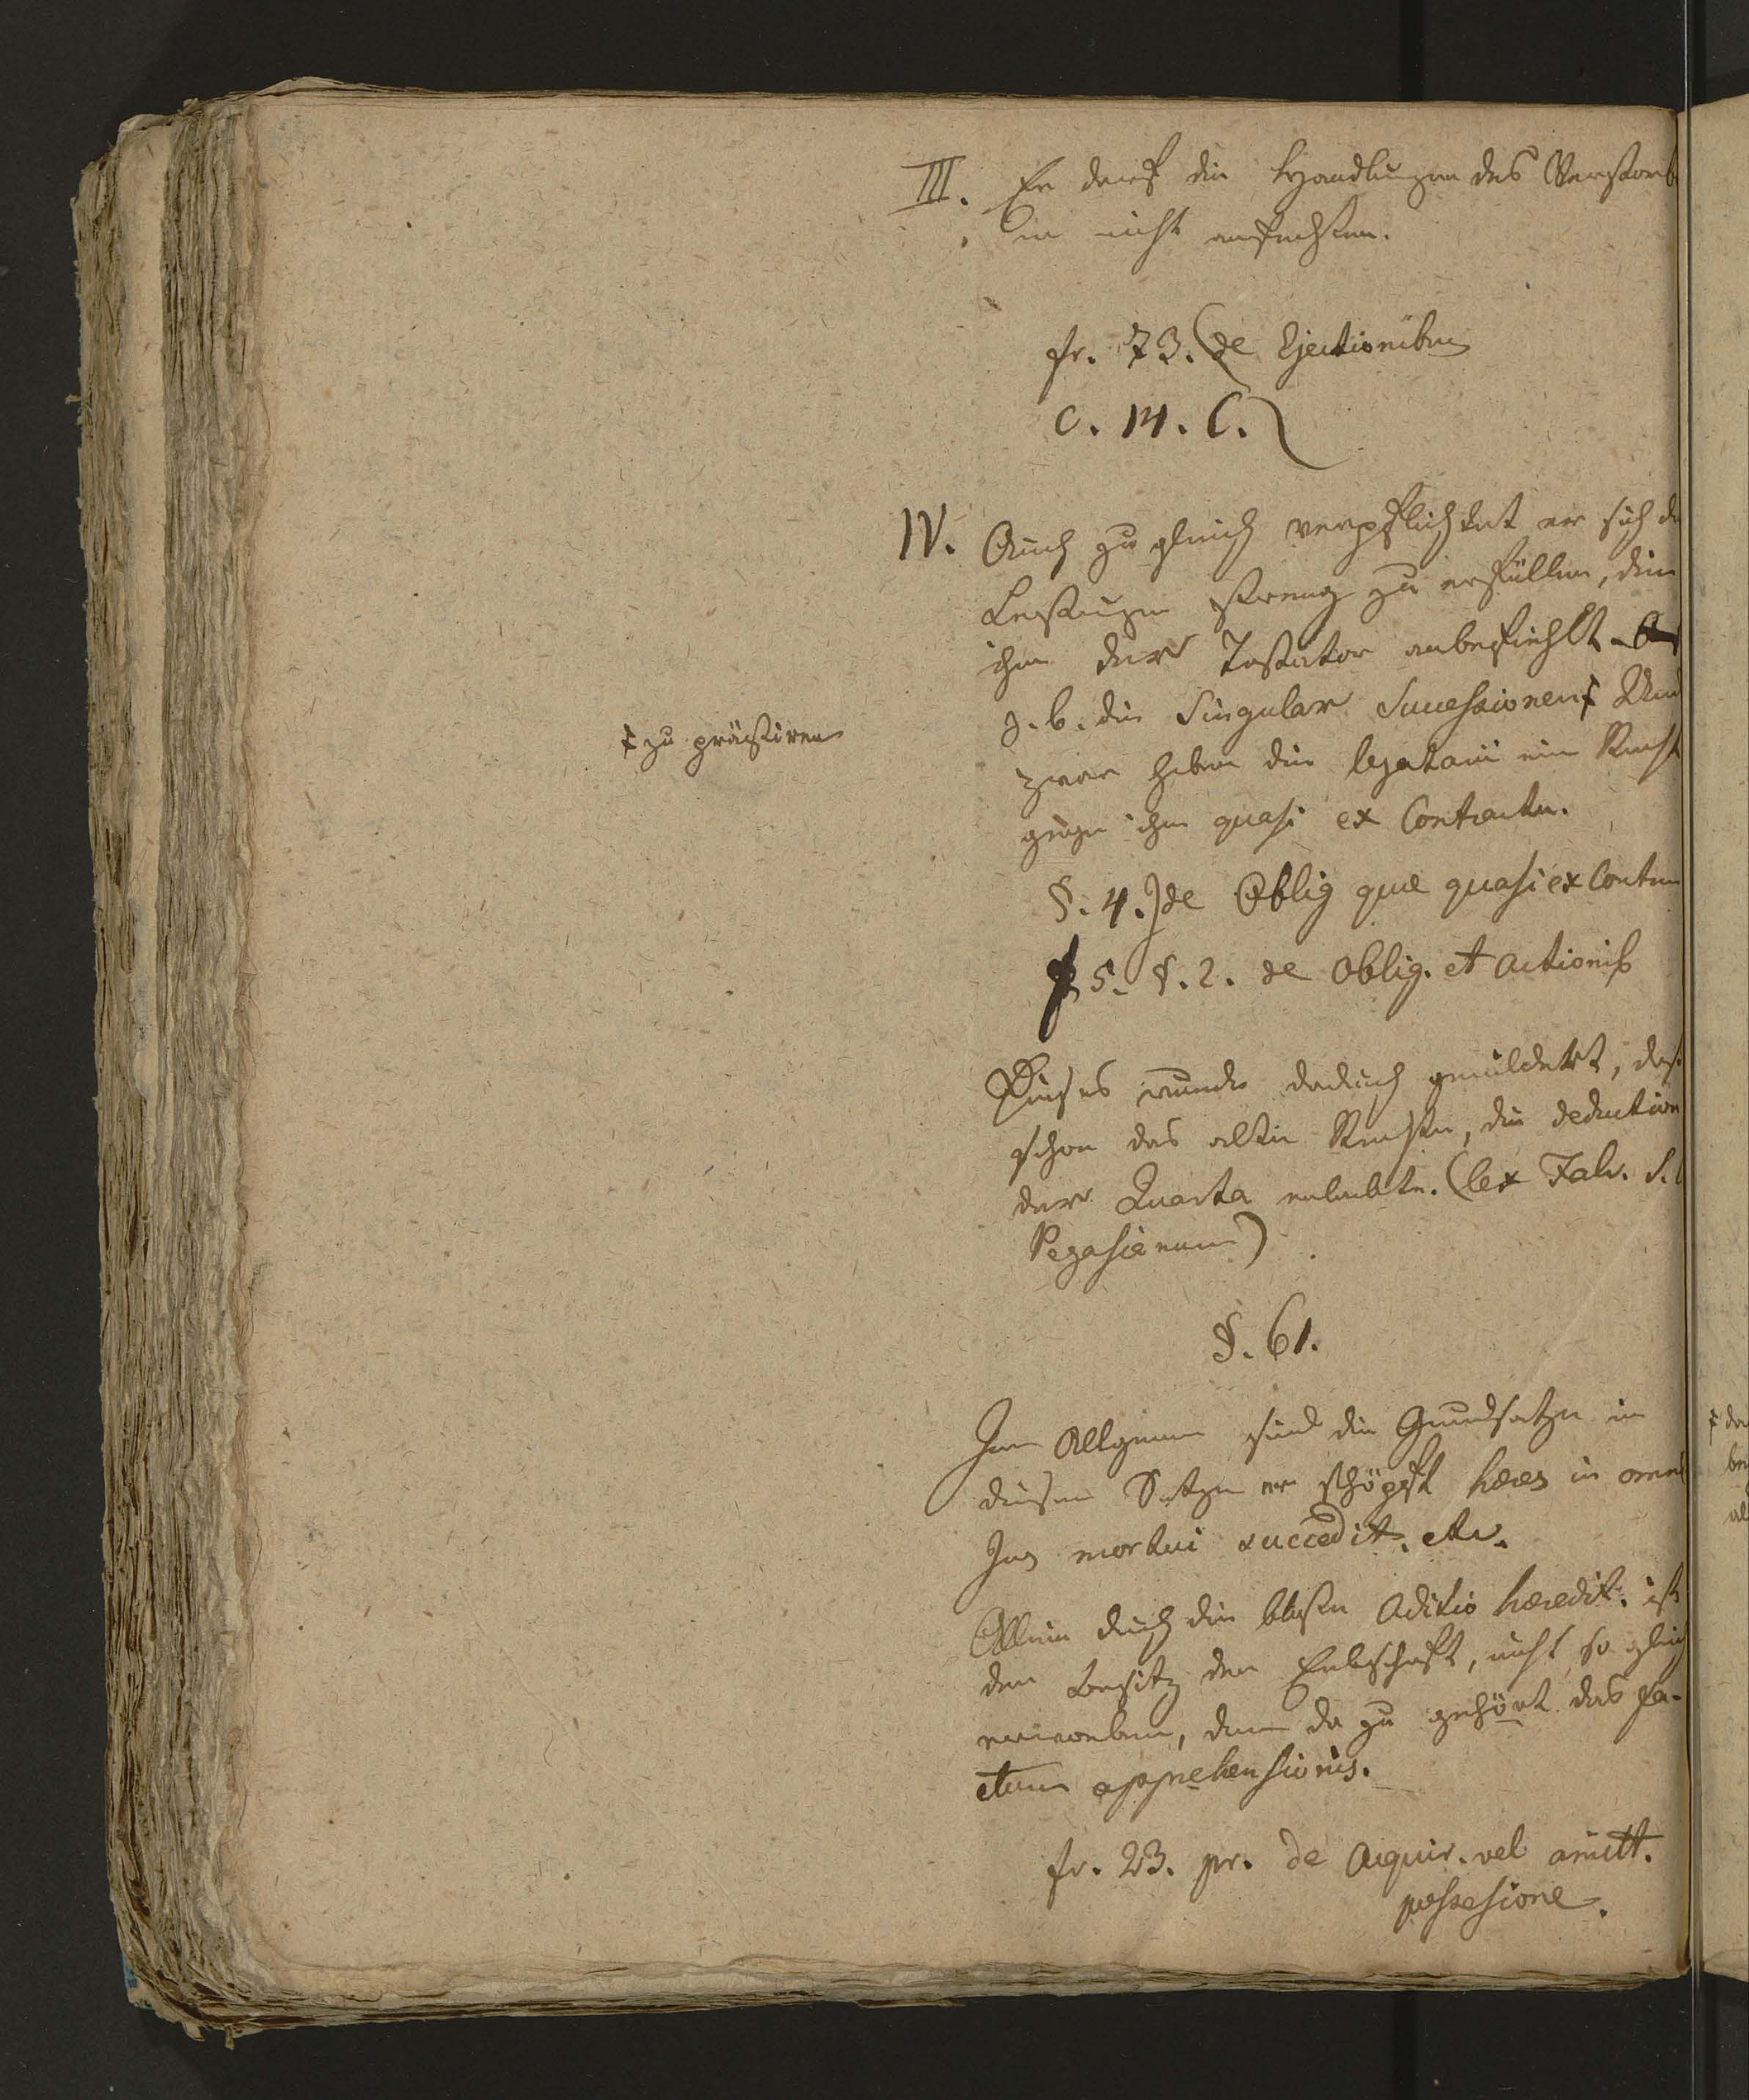 III. Er darf die Handlungen des Verstorb
en nicht anfechten.
fr. 73. (de Ejectionibus
C. 14. C. (
IV. Auch zu gleich verpflichtet er sich di
Leistungen streng zu erfüllen, die
ihm der Testator anbefiehlt.
z. b. die Singular Successionen ŧ Und
zwar haben die legatarii ein Recht
ŧ zu prästiren
gegen ihn quasi ex Contractu.
§. 4. J de Oblig quae quasi ex Contra
5. §. 2. de Oblig. et actionib
Dieses wurde dadurch gemildert, daß
schon das alte Recht, die deduction
der Quarta erlaubte. (lex Falc. S. C
Pegasianum)
§. 61.
Im Allgemeinen sind die Grundsätze in
diesem Satze erschöpft heres in omne
Jus mortui succedit. etc.
Allein durch die bloßen Aditio heredit. ist
der Besitz der Erbschaft, nicht so gleich
erworben, denn da zu gehört das fa-
ctum apprehensionis.
fr. 23. pr. de Acquir. vel amitt.
possesione.